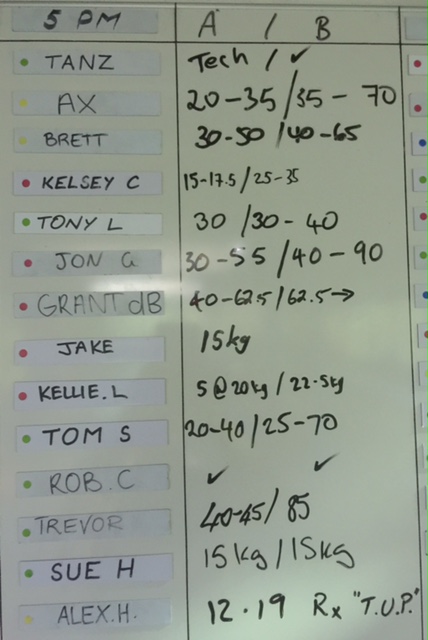 5 PM A / B
TANZ Tech / ✓
AX 20-35/35 - 70
BRETT 30-50 /40-65
KELSEY C 15-17.5/25-35
TONY L 30 /30-40
JON G 30-55/40-90
GRANT dB 40-62.5/62.5→
JAKE 15kg
KELLIE.L 5@20kg/22.5kg
TOM S 20-40/25-70
ROB.C ✓ ✓
TREVOR 40-45/85
SUE H 15kg/15kg
ALEX.H. 12.19 Rx "T.U.P."